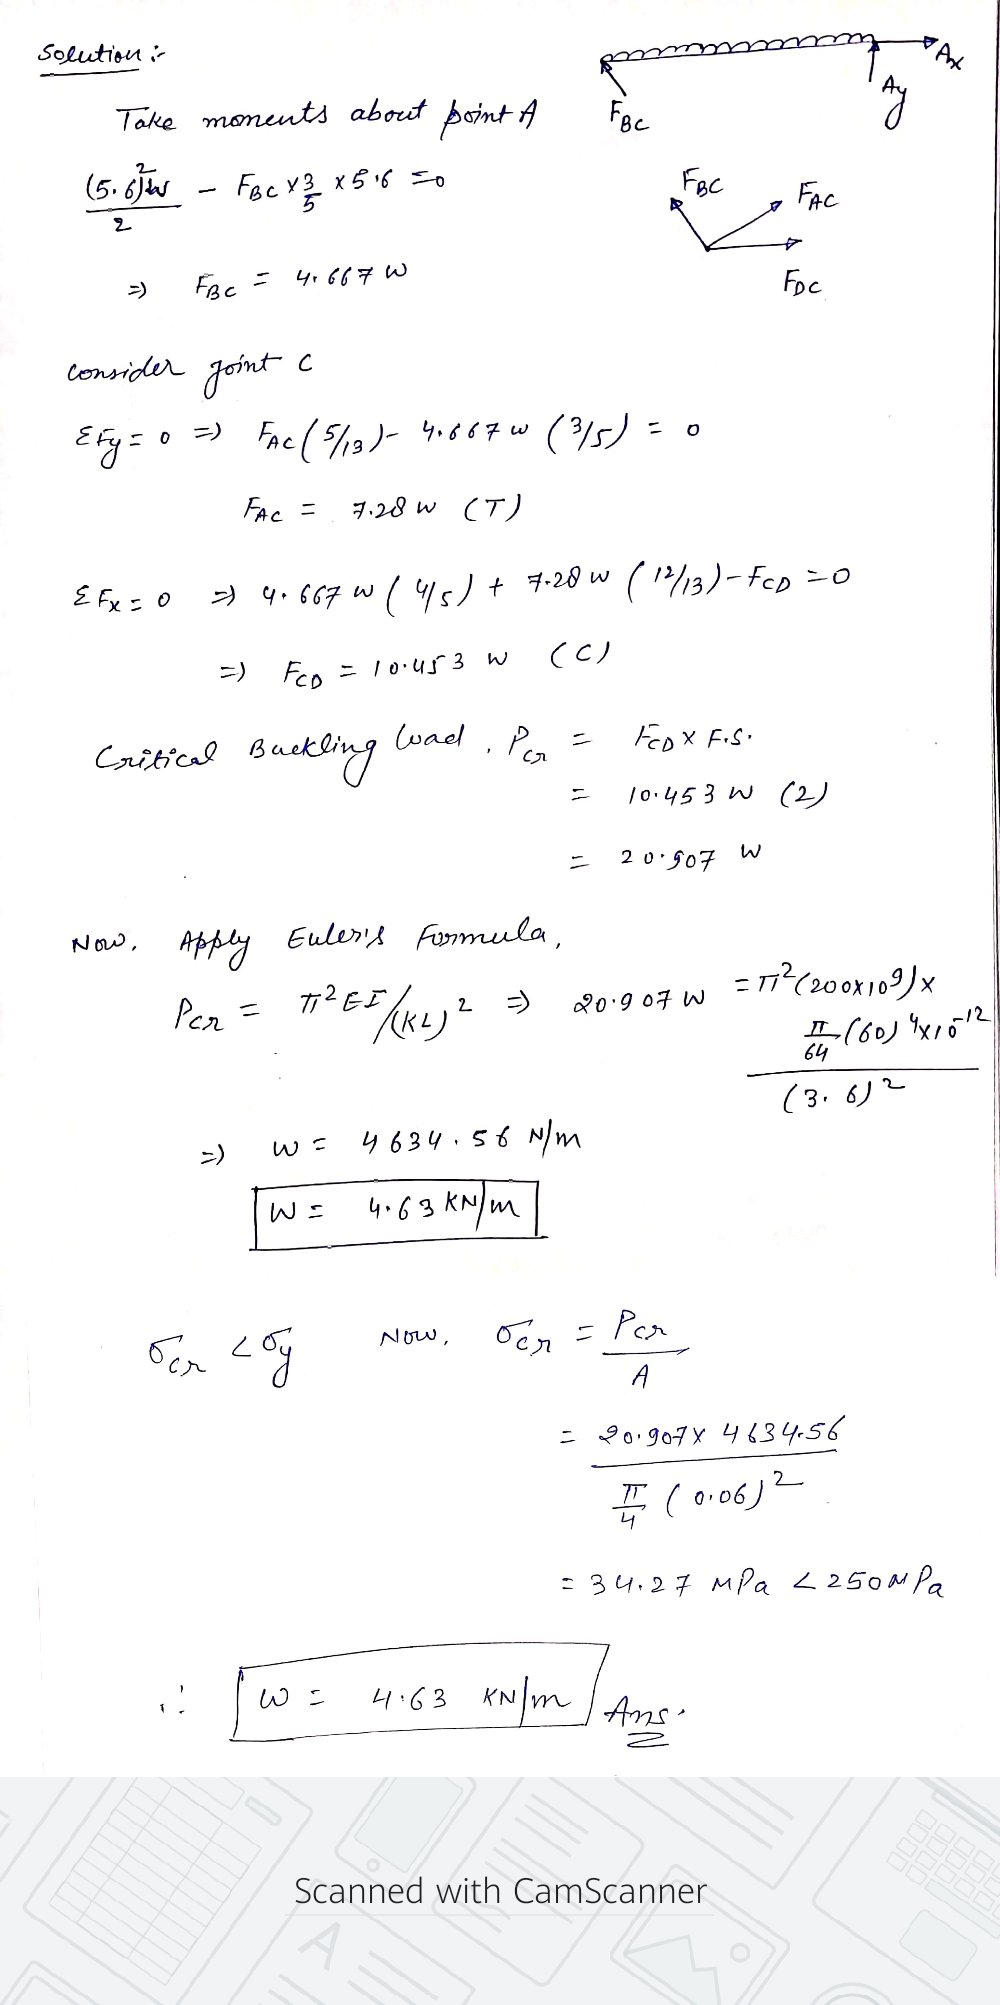 Solution :-
Ax
Ay
FBC
Take moments about point A
(5.6)²w/2 - FBC × 3/5 × 5.6 = 0
FBC
FAC
FDC
=) FBC = 4.667 W
Consider joint C
ΣFy = 0 => FAC (5/13) - 4.667 w (3/5) = 0
FAC = 7.28 W (T)
ΣFx = 0 => 4.667 w (4/5) + 7.28 w (12/13) - FCD = 0
=) FCD = 10.453 W (C)
Critical Buckling load, Pcr = FCD × F.S.
= 10.453 W (2)
= 20.907 W
Now, Apply Euler's Formula,
Pcr = π²EI/(KL)² => 20.907 W = π²(200×10⁹) × π/64 (60)⁴ × 10⁻¹² / (3.6)²
=) W = 4634.56 N/m
W = 4.63 KN/m
σcr < σy Now, σcr = Pcr/A
= 20.907 × 4634.56 / π/4 (0.06)²
= 34.27 MPa < 250 MPa
∴ W = 4.63 KN/m Ans.
Scanned with CamScanner